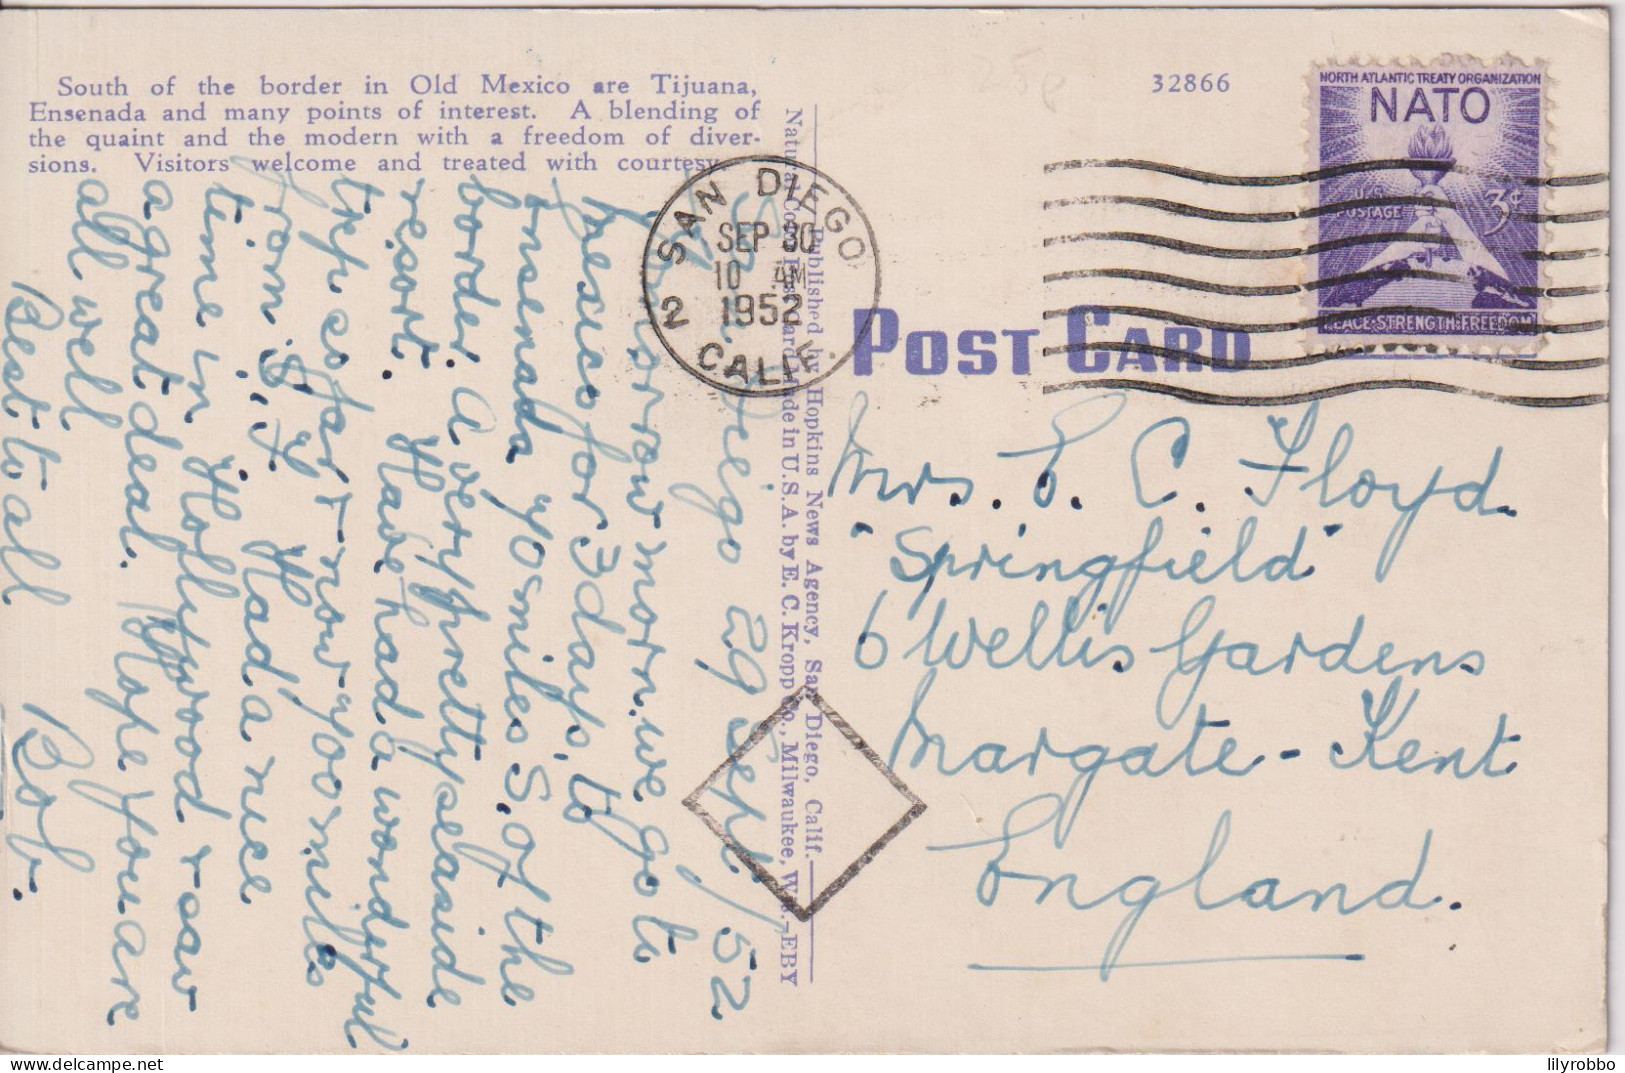 South of the border in Old Mexico are Tijuana,
Ensenada and many points of interest. A blending of
the quaint and the modern with a freedom of diver-
sions. Visitors welcome and treated with courtesy.
32866
NORTH ATLANTIC TREATY ORGANIZATION
NATO
U.S.
POSTAGE
3¢
PEACE·STRENGTH·FREEDOM
SAN DIEGO
SEP 30
10 AM
1952
2 CALIF.
POST CARD
Published by Hopkins News Agency, San Diego, Calif.
Natural Color Post Card Made in U.S.A. by E. C. Kropp Co., Milwaukee, Wis.-EBY
San Diego 29 Sept/52
Tomorrow morn. we go to
Mexico for 3 days, to
Ensenada 70 miles S. of the
border. A very pretty seaside
resort. Have had a wonderful
trip so far & now 700 miles
from S.F. Had a nice
time in Hollywood & saw
a great deal. Hope you are
all well
Best to all
Bob.
Mrs. E. C. Floyd.
"Springfield"
6 Wellis Gardens
Margate - Kent
England.
delcampe.net
lilyrobbo